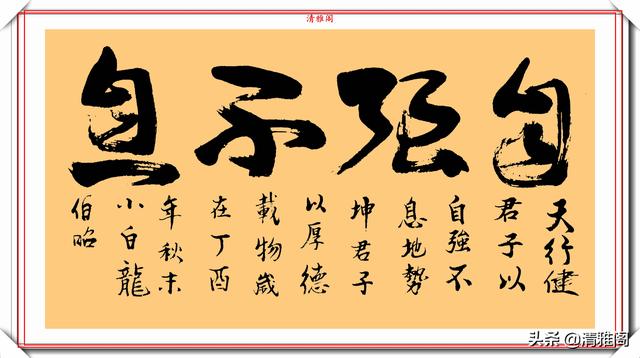 清雅阁
自强不息
天行健
君子以
自強不
息地勢
坤君子
以厚德
載物歲
在丁酉
年秋末
小白龍
伯昭
头条 @清雅阁